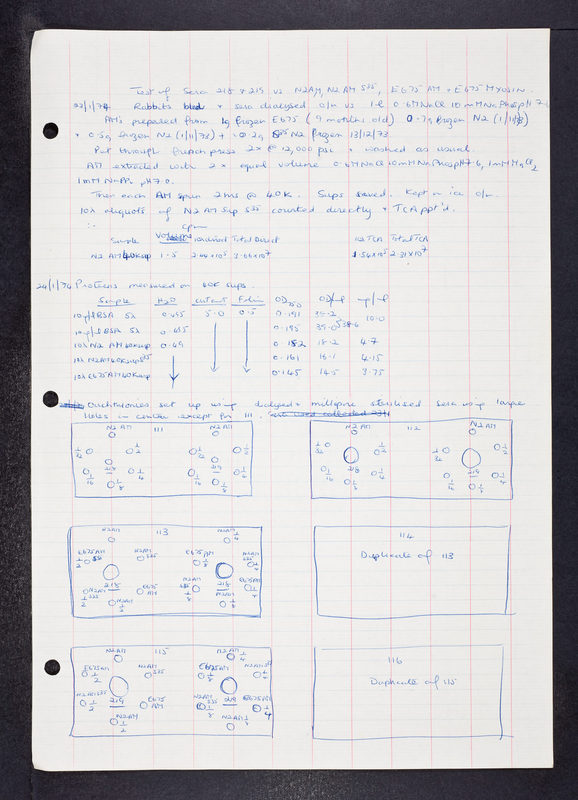 Test of Sera 218 & 219 vs N2AM, N2AM S35, E675 AM & E675 MYOSIN.
22/1/74 Rabbits bled & sera dialysed o/n vs 1-l 0.6M NaCl 10mM Na Phosp H 7.
AMs prepared from 1g frozen E675 (9 months old) 0.7g frozen N2 (1/11/73)
+ 0.5g frozen N2 (1/11/73) + 0.2g S35 N2 frozen 13/12/73
Put through french press 2x @ 12,000 psi & washed as usual.
AM extracted with 2x equal volume 0.6M NaCl 10mM NaPhosp H7.6, 1mM MgCl2
1mM NaPPi pH 7.0.
Then each AM span 2 hrs @ 40K. Sups saved. Kept on ice o/n.
10λ aliquots of N2 AM Sup S35 counted directly & TCA ppt'd.
cpm
Sample Volume Total Direct 10λ TCA Total TCA
N2 AM 40K sup 1.5 2.44x10⁵ 3.66x10⁷ 1.54x10⁵ 2.31x10⁷
24/1/74 Proteins measured on 40K sups.
Sample H2O cu tart Folin OD750 OD/-l µg/-l
10µg/l BSA 5λ 0.495 5.0 0.5 0.191 38.2
10µg/l BSA 5λ 0.495 0.195 39.0 38.6 10.0
10λ N2 AM 40K sup 0.49 0.182 18.2 4.7
10λ N2AM 40K sup S35 0.161 16.1 4.15
10λ E675 AM 40K sup 0.145 14.5 3.75
Ouchterlonies set up using dialysed & millipore sterilised sera using large
holes in center except for 111.
N2AM 111 N2AM
1/32 1/2 1/32 1/2
1/16 218 1/4 1/16 219 1/4
1/8 1/8
N2AM 112 N2AM
1/32 1/2 1/32 1/2
1/16 218 1/4 1/16 219 1/4
1/8 1/8
N2AM 113 N2AM 1/4
E675 AM 1/2 N2AM S35 E675 AM 1/8 N2AM S35 1/4
N2AM S35 1/2 218 E675 AM N2AM S35 1/8 218 E675 AM 1/4
N2AM 1/2 N2AM 1/8
114
Duplicate of 113
N2AM 115 N2AM 1/4
E675 AM 1/2 N2AM S35 E675 AM 1/8 N2AM S35 1/4
N2AM S35 1/2 219 E675 AM N2AM S35 1/8 219 E675 AM 1/4
N2AM 1/2 N2AM 1/8
116
Duplicate of 115